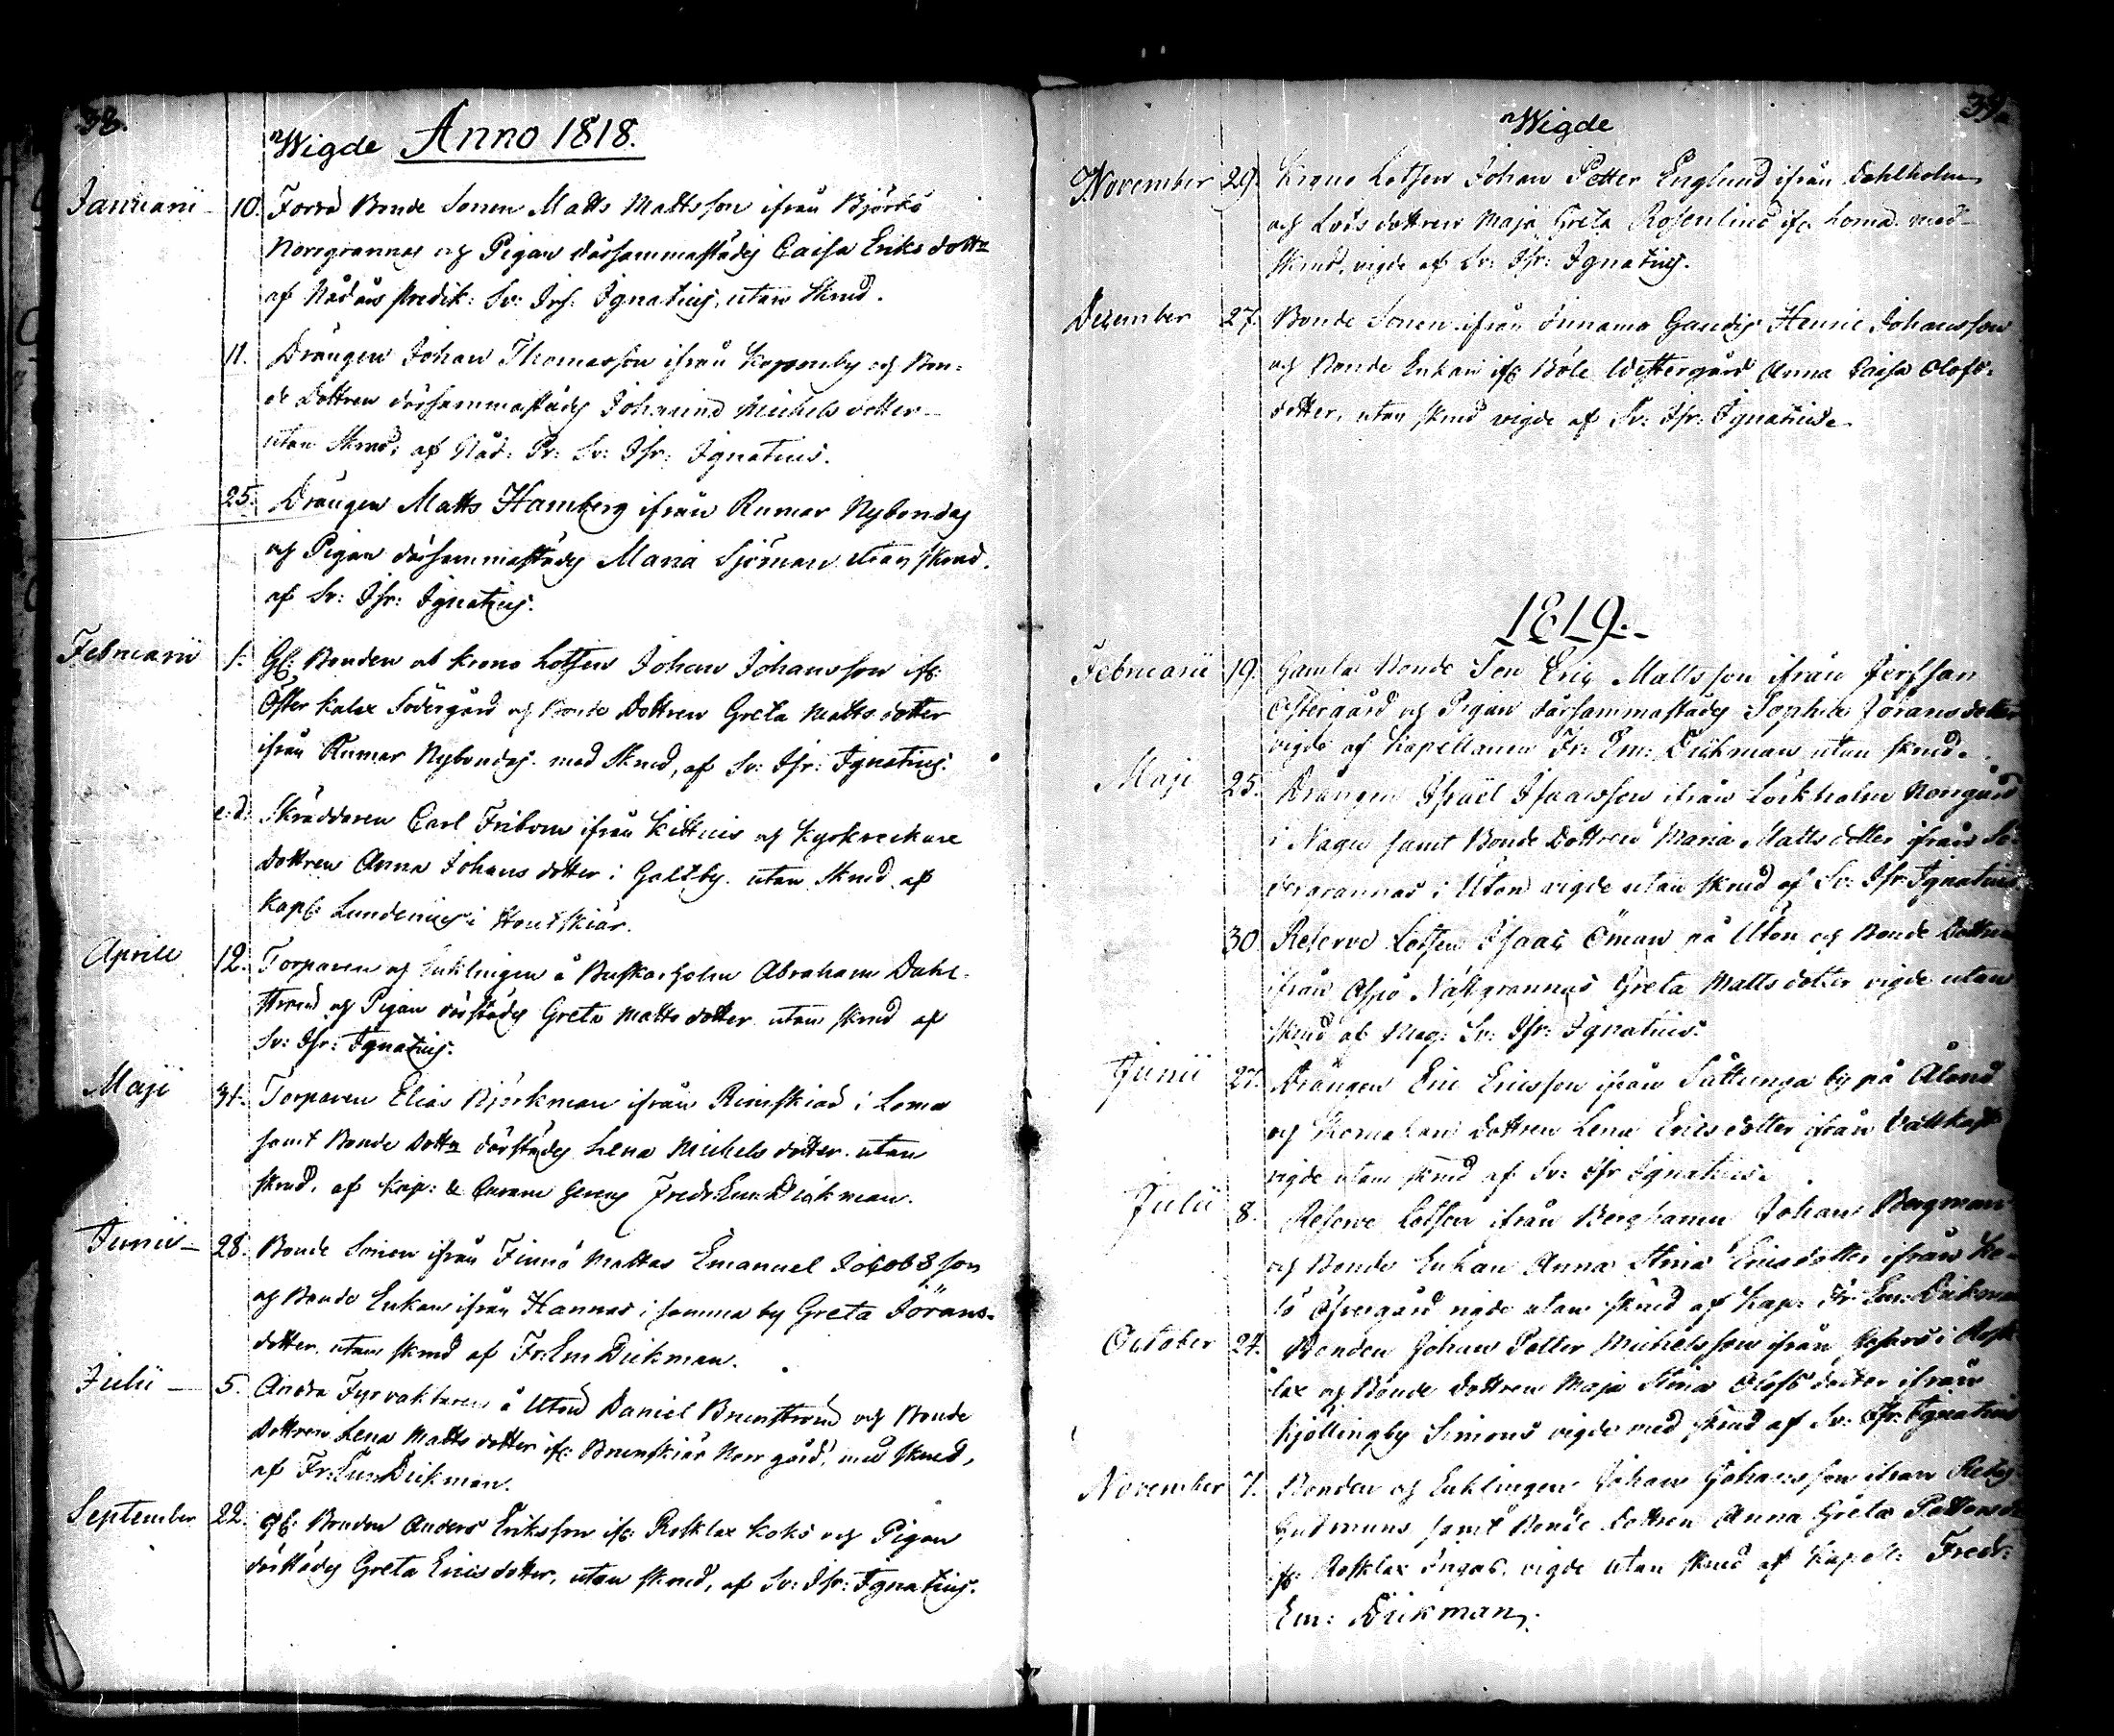 38.
Wigde Anno 1818.
Januarii 10. Förra Bonde Sonen Matts Mattsson ifrån Björkö
Norrgrannas och Pigan därsammastädes Caisa Eriksdottr
af Nådårs Predik: Sv: Isr: Ignatius, utan Skrud.
11. Drängen Johan Thomasson ifrån och Bon-
de Dottren därsammastädes Johanna Michelsdotter
utan Skrud, af Nåd: Pr: Sv: Isr: Ignatius.
25. Drängen Matts Hamberg ifrån Rumar Nybondas
och Pigan därsammastädes Maria Sjöman utan skrud.
af Sv: Isr: Ignatius.
Februarii 1. Gl: Bonden ob Krono Lotsen Johan Johansson ifr:
Öster Kalax Södergård och Bonde Dottren Greta Mattsdotter
ifrån Rumar Nybondas med Skrud, af Sv: Isr: Ignatius.
e.d. Skräddaren Carl Fribom ifrån Kittuis och Kyrkveckare
dottren Anna Johansdotter i Galtby utan Skrud af
Kapl: Lundenius i Houtskiär.
Aprill 12. Torparen och Enklingen å Buskarholm Abraham Dahl-
ström och Pigan därstädes Greta Mattsdotter utan skrud af
Sv: Isr: Ignatius.
Maji 31. Torparen Elias Björkman ifrån i Loma
samt Bonde Dottr därstädes Lena Michelsdotter utan
skrud, af Kap: & Fredr: Em: Dickman.
Junii 28. Bonde Sonen ifrån Finnö Mattas Emanuel Jacobsson
och Bonde Enkan ifrån Hannas i samma by Greta Jörans-
dotter utan skrud af Fr: Em Dickman.
Julii 5. Andra Fyrvaktaren å Utön Daniel Brunström och Bonde
Dottren Lena Mattsdotter ifr: Brunskiär Norrgård, med skrud,
af Fr: Em Dickman.
September 22. Gl: Bonden Anders Eriksson ifr: Rosklax Kocks och Pigan
därstädes Greta Ericsdotter, utan skrud, af Sv: Isr: Ignatius.
39.
Wigde
November 29. Krono Lotsen Johan Petter Englund ifrån Dahlholm
och Lots dottren Maja Greta Rosenlind ifr: Loma med
skrud, vigde af Sv: Isr: Ignatius.
December 27. Bonde Sonen ifrån Önnamo Henric Johansson
och Bonde Enkan ifr: Böle Westergård Anna Caisa Olofs-
dotter, utan skrud vigde af Sv: Isr: Ignatius.
1819.
Februarii 19. Gamla Bonde Son Eric Mattsson ifrån
Östergård och Pigan därsammastädes Sophia Jöransdotter
vigde af Kapellanen Fr: Em: Dickman utan skrud.
Maji 25. Drängen Israël Isaacsson ifrån Lökholm Norrgård
i Nagu samt Bonde Dottren Maria Mattsdotter ifrån Sö-
dergrannas i Utön vigde utan skrud af Sv: Isr: Ignatius.
30. Reserve Lotsen Isaac Öman på Utön och Bonde Dottren
ifrån Aspö Nästgrannas Greta Mattsdotter vigde utan
skrud af Mag: Sv: Isr: Ignatius.
Junii 27. Drängen Eric Ericsson ifrån Sottunga by på Åland
och dottren Lena Ericsdotter ifrån
vigde utan skrud af Sv: Isr: Ignatius.
Julii 8. Reserve Lotsen ifrån Berghamn Johan Bergman
och Bonde Enkan Anna Stina Ericsdotter ifrån
Östergård vigde utan skrud af Kap: Fr: Em: Dickman
October 24. Bonden Johan Petter Michelsson ifrån i Rosk-
lax och Bonde dottren Maja Stina Olofsdotter ifrån
Kjöllingby Simons vigde med skrud af Sv: Isr: Ignatius
November 7. Bonden och Enklingen Johan Johansson ifrån Retais
Gudmuns samt Bonde dottren Anna Greta Pettersdr
ifr: Rosklax Ingas, vigde utan skrud af Kapell: Fredr:
Em: Dickman.